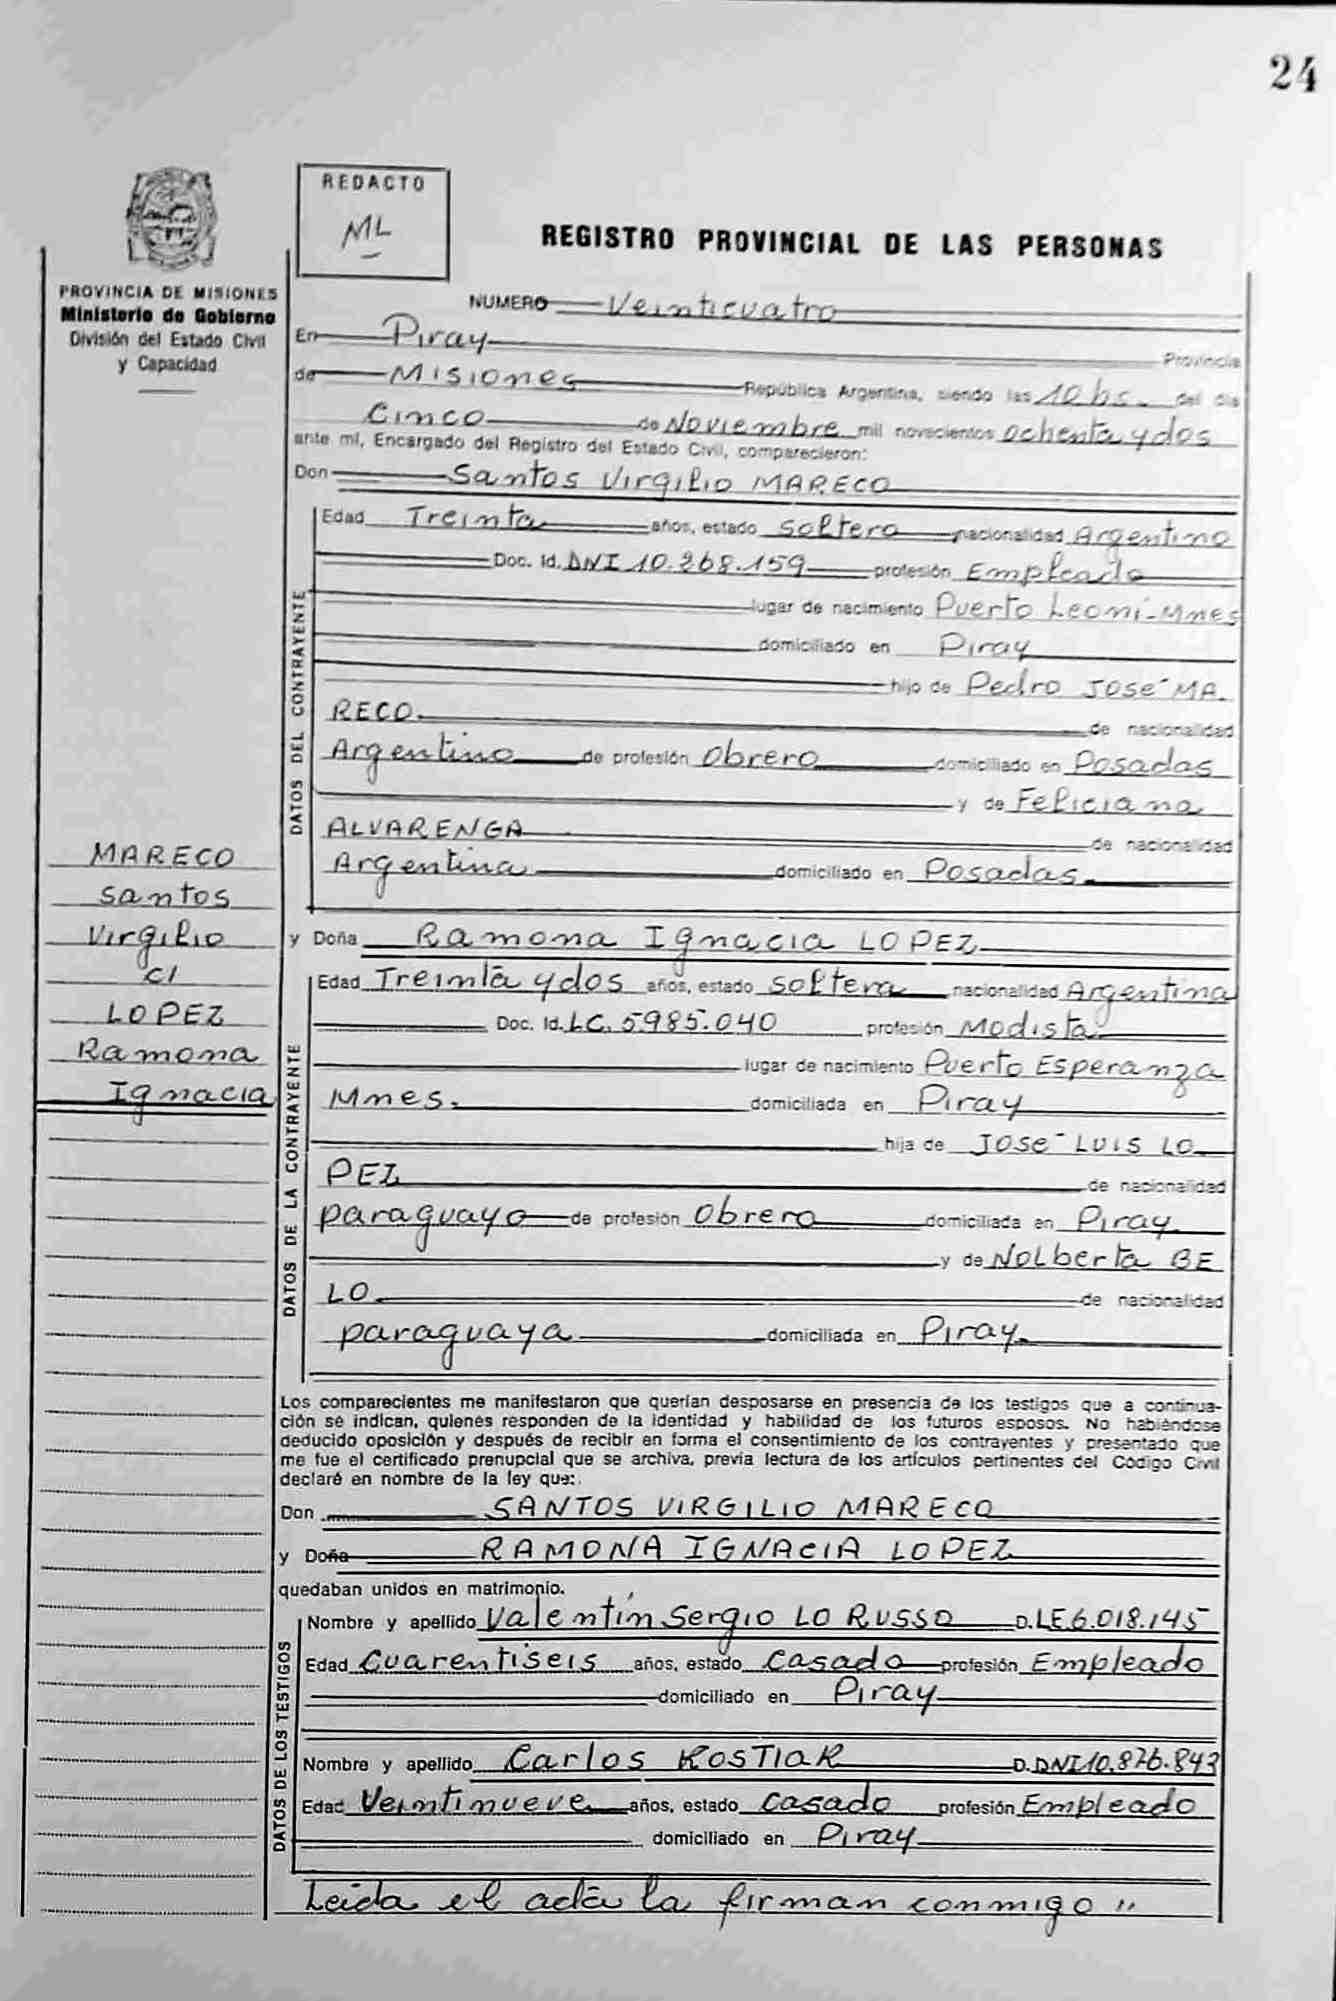 24
REDACTO
ML
REGISTRO PROVINCIAL DE LAS PERSONAS
PROVINCIA DE MISIONES
Ministerio de Gobierno
División del Estado Civil
y Capacidad
NUMERO Veinticuatro
En Piray Provincia
de Misiones República Argentina, siendo las 10 hs. del día
Cinco de Noviembre mil novecientos ochenta y dos
ante mí, Encargado del Registro del Estado Civil, comparecieron:
Don Santos Virgilio MARECO
DATOS DEL CONTRAYENTE
Edad Treinta años, estado soltero nacionalidad Argentino
Doc. Id. DNI 10.268.159 profesión Empleado
lugar de nacimiento Puerto Leoni-Mnes
domiciliado en Piray
hijo de Pedro José MA.
RECO. de nacionalidad
Argentino de profesión Obrero domiciliado en Posadas
y de Feliciana
ALVARENGA de nacionalidad
Argentina domiciliado en Posadas.
MARECO
Santos
Virgilio
c/
LOPEZ
Ramona
Ignacia
y Doña Ramona Ignacia LOPEZ
DATOS DE LA CONTRAYENTE
Edad Treinta y dos años, estado soltera nacionalidad Argentina
Doc. Id. LC. 5985.040 profesión Modista
lugar de nacimiento Puerto Esperanza
Mnes. domiciliada en Piray
hija de José Luis LO
PEZ de nacionalidad
paraguayo de profesión Obrero domiciliada en Piray
y de Nolberta BE
LO. de nacionalidad
paraguaya domiciliada en Piray.
Los comparecientes me manifestaron que querían desposarse en presencia de los testigos que a continua-
ción se indican, quienes responden de la identidad y habilidad de los futuros esposos. No habiéndose
deducido oposición y después de recibir en forma el consentimiento de los contrayentes y presentado que
me fue el certificado prenupcial que se archiva, previa lectura de los artículos pertinentes del Código Civil
declaré en nombre de la ley que:
Don SANTOS VIRGILIO MARECO
y Doña RAMONA IGNACIA LOPEZ
quedaban unidos en matrimonio.
DATOS DE LOS TESTIGOS
Nombre y apellido Valentín Sergio LO RUSSO D. LE 6.018.145
Edad Cuarentiseis años, estado Casado profesión Empleado
domiciliado en Piray
Nombre y apellido Carlos KOSTIAK D. DNI 10.876.843
Edad Veintinueve años, estado Casado profesión Empleado
domiciliado en Piray
Leida el acta la firman conmigo "